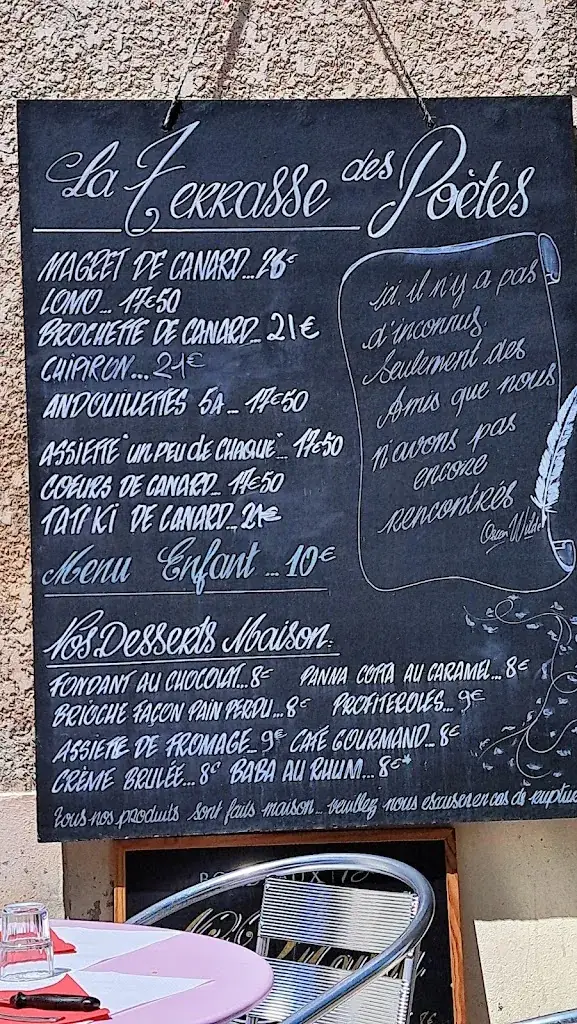 La Terrasse des Poètes
MAGRET DE CANARD... 26€
LOMO... 17€50
BROCHETTE DE CANARD... 21€
CHIPIRON... 21€
ANDOUILLETTES 5A... 17€50
ASSIETTE "UN PEU DE CHAQUE"... 17€50
COEURS DE CANARD... 17€50
TATAKI DE CANARD... 21€
Menu Enfant... 10€
ici, il n'y a pas
d'inconnus,
Seulement des
Amis que nous
n'avons pas
encore
rencontrés
Oscar Wilde
Nos Desserts Maison:
FONDANT AU CHOCOLAT...8€ PANNA COTTA AU CARAMEL...8€
BRIOCHE FAÇON PAIN PERDU...8€ PROFITEROLES...9€
ASSIETTE DE FROMAGE...9€ CAFÉ GOURMAND...8€
CRÈME BRULÉE...8€ BABA AU RHUM...8€
Tous nos produits sont faits maison... veuillez nous excuser en cas de rupture